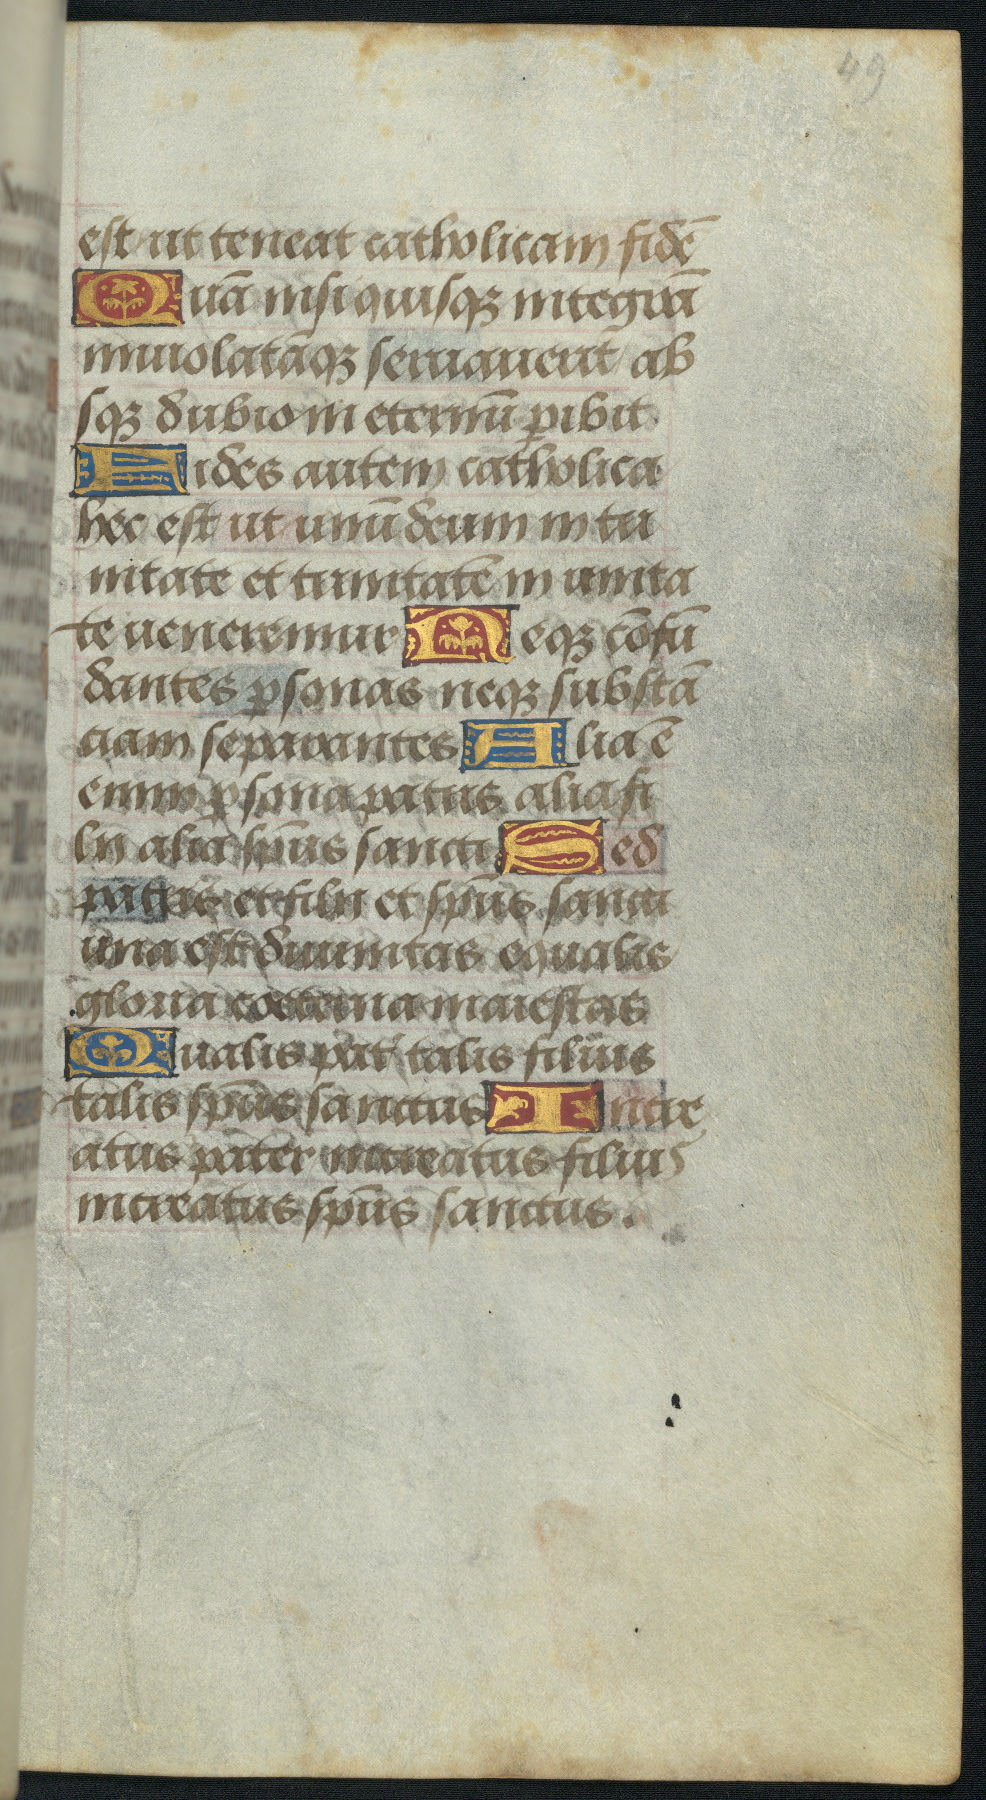 49
est ut teneat catholicam fidē
Quā nisi quisqꝫ integrā
inuiolatāqꝫ seruauerit ab
sqꝫ dubio in eternū ꝑibit.
Fides autem catholica
hec est ut unū deum in tri
nitate et trinitatē in unita
te ueneremur Neqꝫ cōfu
dantes ꝑsonas neqꝫ substā
ciam separantes Alia ē
enim ꝑsona patris alia fi
lii alia spūs sancti Sed
patris et filii et spūs sancti
una est diuinitas equalis
gloria coeterna maiestas
Qualis pat̄ talis filius
talis spūs sanctus Incre
atus pater increatus filius
increatus spūs sanctus.